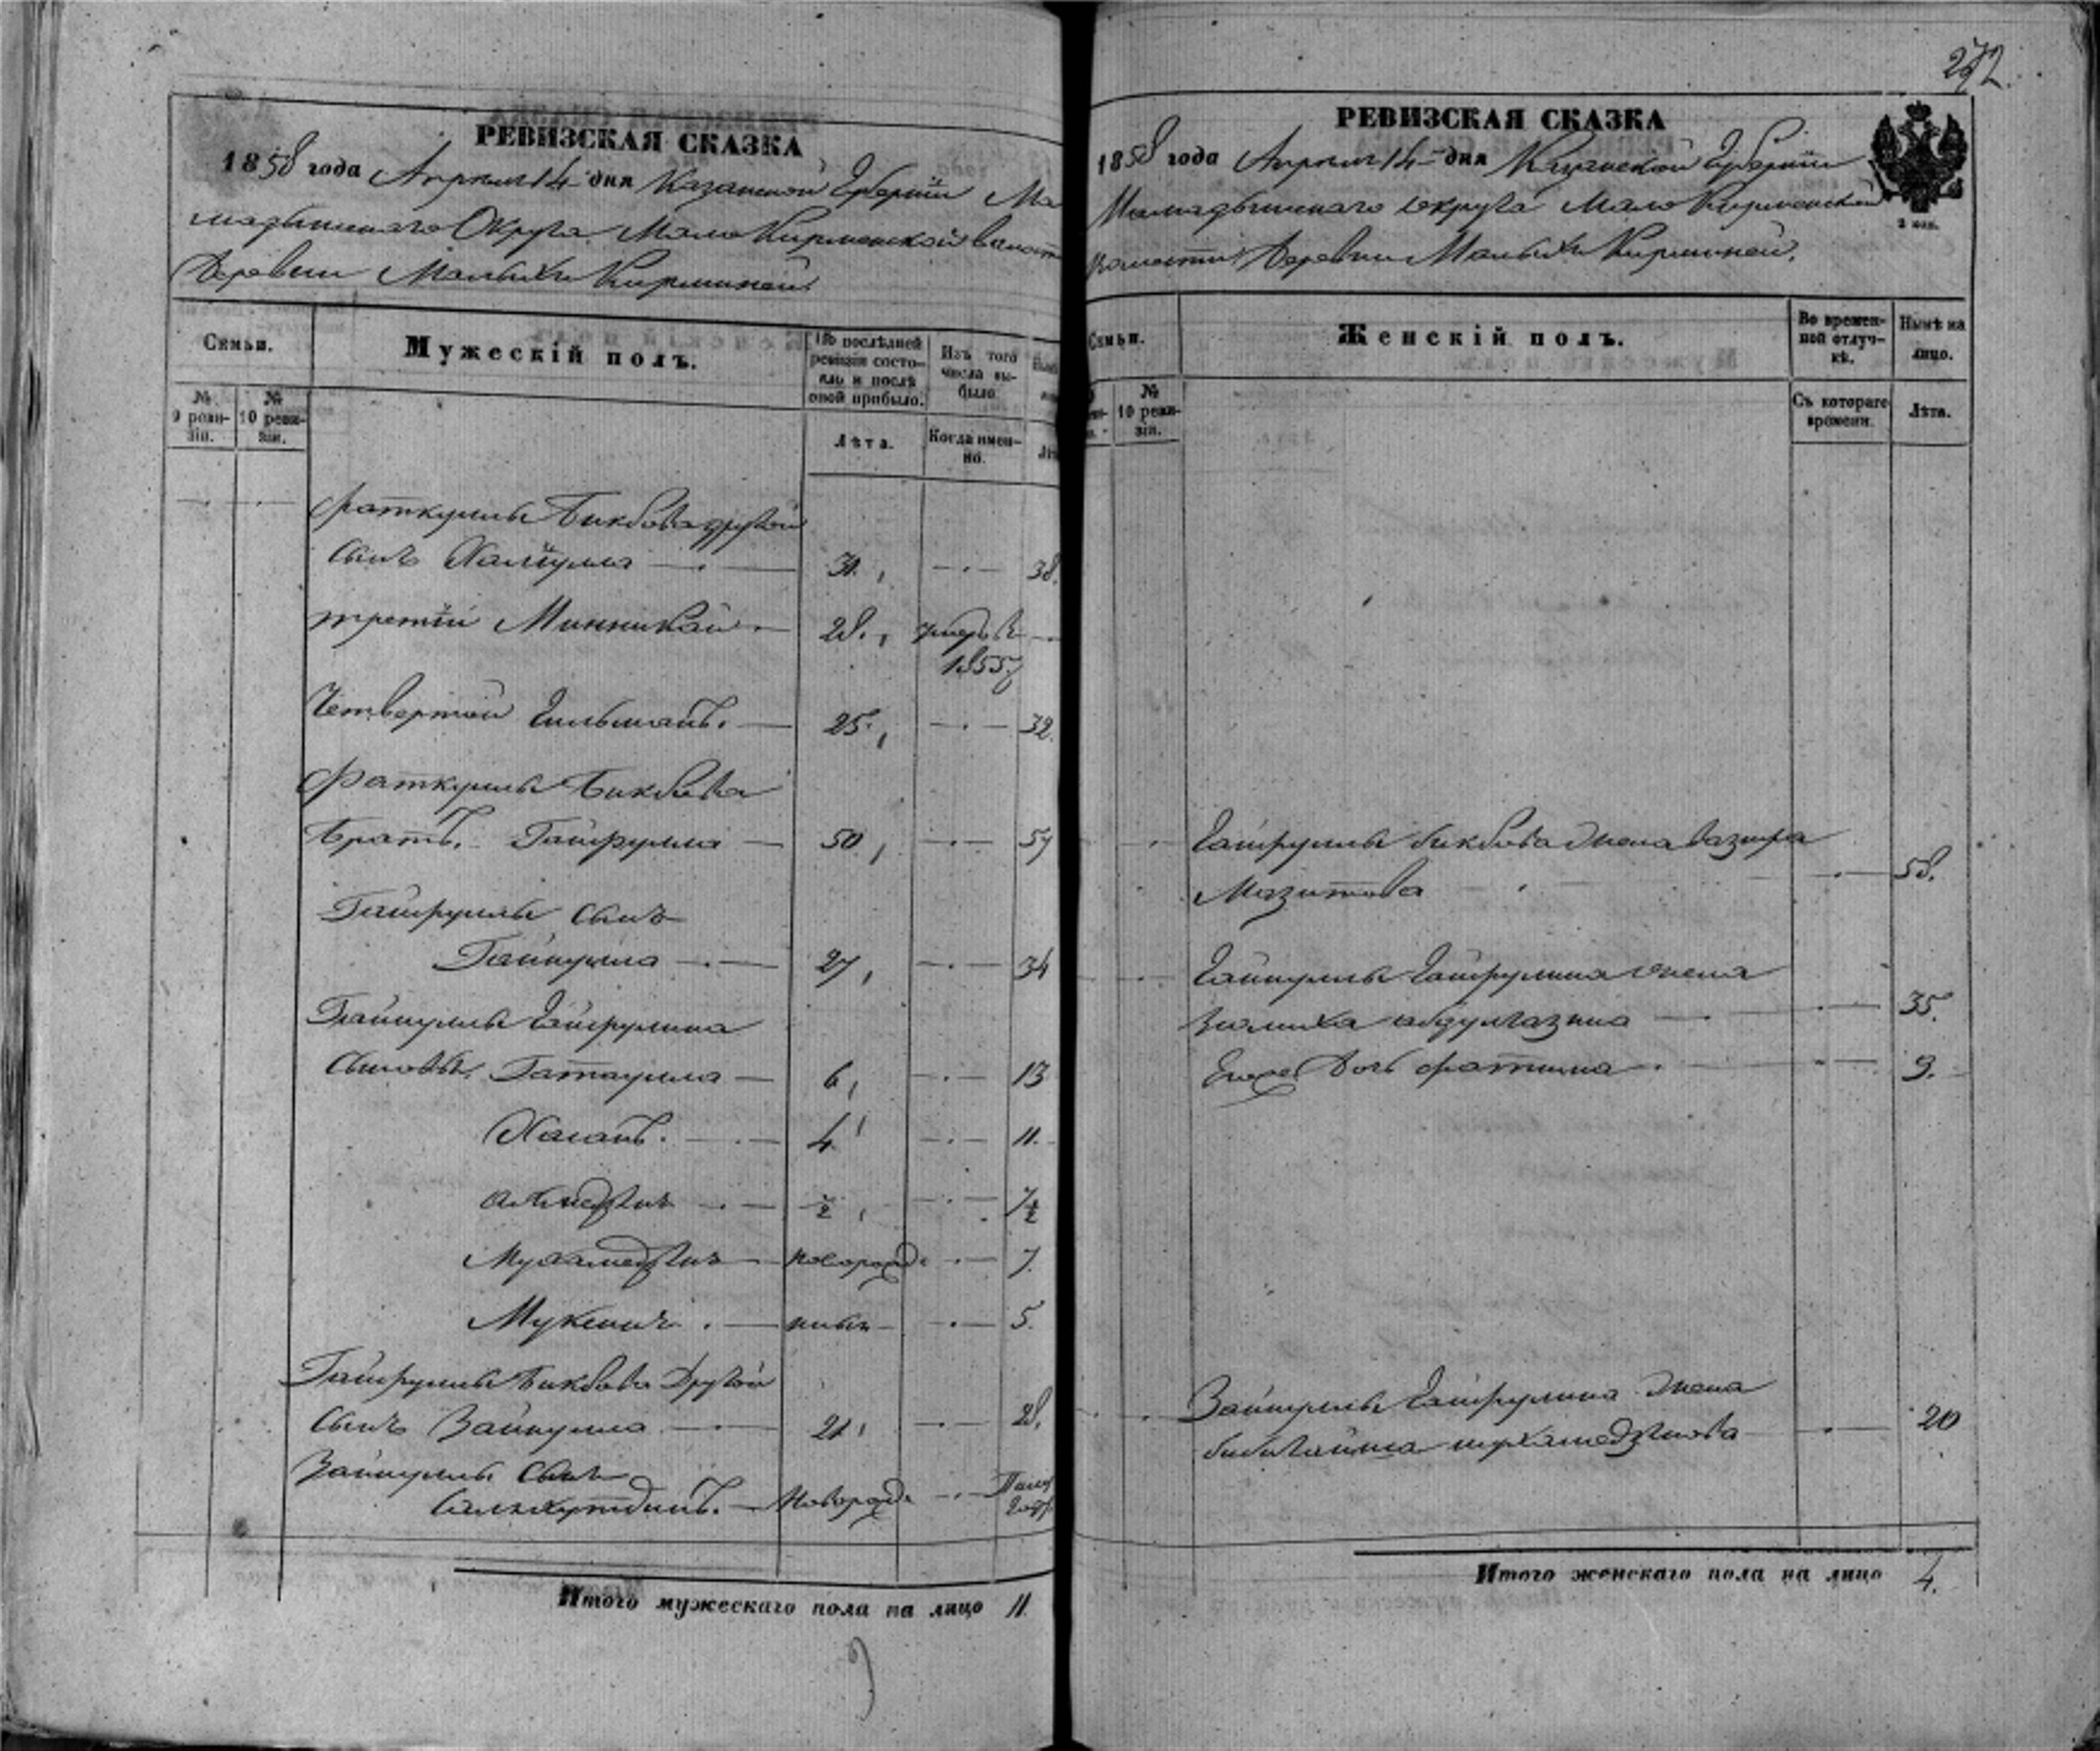 РЕВИЗСКАЯ СКАЗКА
1858 года Апреля 14 дня Казанской Губернии Ма
мадышскаго Округа Мало Кирменской волости
Деревни Малыхъ Кирменей
Семьи.
Мужескій полъ.
По послѣдней ревизіи состояло и послѣ оной прибыло.
Изъ того числа выбыло
№ 9 ревизіи.
№ 10 ревизіи.
Лѣта.
Когда именно.
Фаткуллы Бикбова другой
сынъ Халиулла 31. 38.
третій Минникай 28. 1855
Четвертой Гильманъ. 25. 32.
Фаткуллы Бикбова
братъ. Гайфулла 50 57
Гайфуллы сынъ
Гайнулла 27 34
Гайнуллы Гайфуллина
сыновья Гатаулла 6 13
Хасанъ. 4 11.
Ахмедзянъ 1/2 7 1/2
Мухамедзянъ новорожд. 7.
Мукминъ ныя 5.
Гайфуллы Бикбова Другой
сынъ Зайнулла 21 28.
Зайнуллы сынъ
новорожд.
Итого мужескаго пола на лицо 11.
272
РЕВИЗСКАЯ СКАЗКА
1858 года Апреля 14 дня Казанской Губерніи
2 коп.
Мамадышскаго округа Мало Кирменской
волости Деревни Малыхъ Кирменей.
Семьи.
Женскій полъ.
Во временной отлучкѣ.
Нынѣ на лицо.
№ 10 ревизіи.
Съ котораго времени.
Лѣта.
Гайфуллы Бикбова жена Вазифа
Мазитова 58.
Гайнуллы Гайфуллина жена
Зюлиха Абдулвазина 35.
Ея дочь Фатима 9.
Зайнуллы Гайфуллина жена
Бибигайша Мухамедзянова 20
Итого женскаго пола на лицо 4.